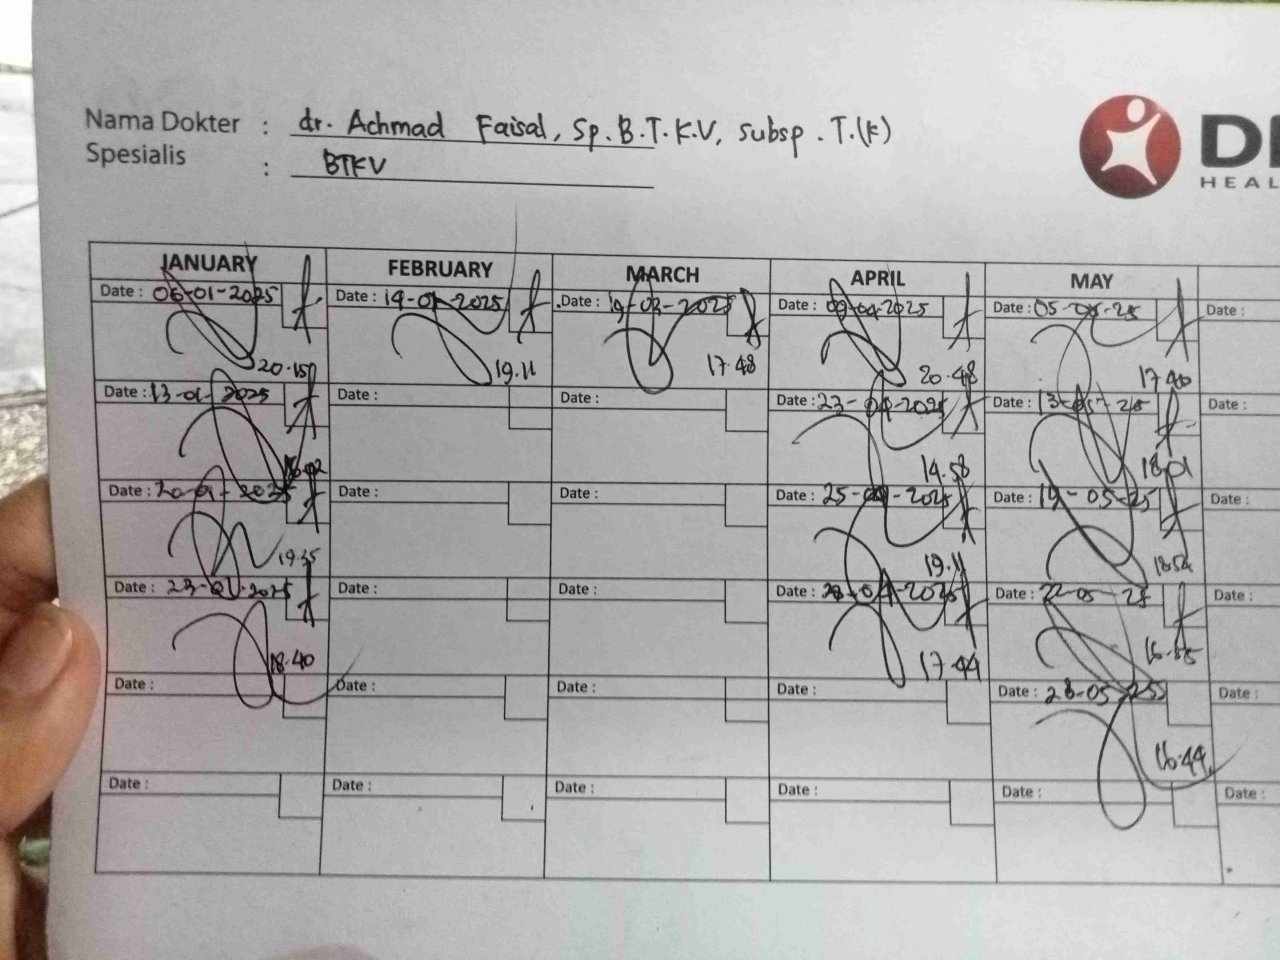 Nama Dokter : dr. Achmad Faisal, Sp.B.T.K.V, subsp. T.(K)
Spesialis : BTKV
HEAL
JANUARY FEBRUARY MARCH APRIL MAY
Date : 06-01-2025 Date : Date : 19-03-2025 Date : 09-04-2025 Date : 05-05-25 Date :
20.15 19.11 17.48 20.48 17.40
Date : 13-01-2025 Date : Date : Date : 23-04-2025 Date : 13-05-25 Date :
14.58 18.01
Date : 20-01-2025 Date : Date : Date : 25-04-2025 Date : 19-05-25 Date :
19.35 19.11 18.54
Date : 23-01-2025 Date : Date : Date : 28-04-2025 Date : 22-05-25 Date :
18.40 17.44 16.55
Date : Date : Date : Date : Date : 28-05-25 Date :
16.44
Date : Date : Date : Date : Date : Date :